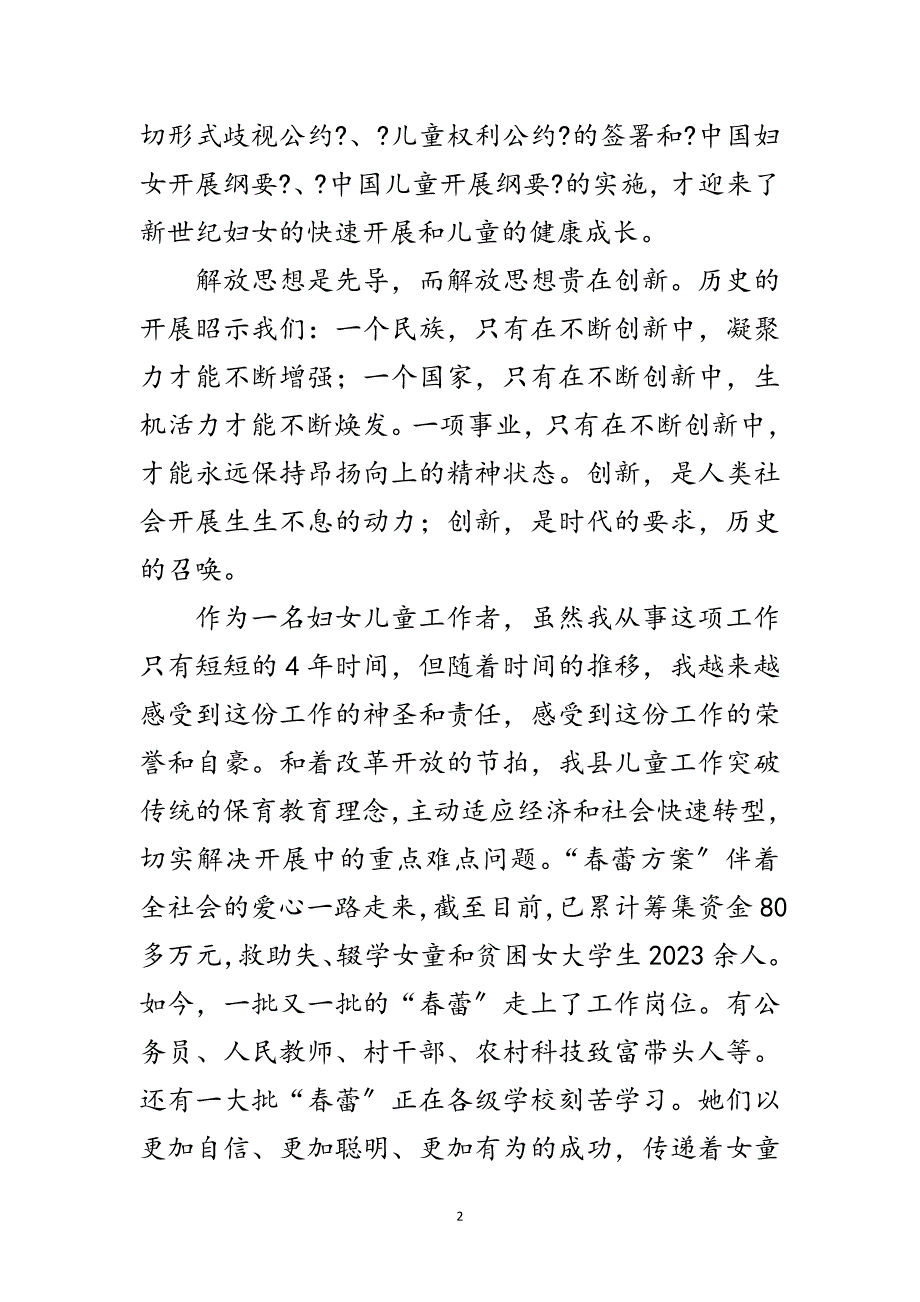 切形式歧视公约?、?儿童权利公约?的签署和?中国妇
女开展纲要?、?中国儿童开展纲要?的实施，才迎来了
新世纪妇女的快速开展和儿童的健康成长。
解放思想是先导，而解放思想贵在创新。历史的
开展昭示我们：一个民族，只有在不断创新中，凝聚
力才能不断增强；一个国家，只有在不断创新中，生
机活力才能不断焕发。一项事业，只有在不断创新中，
才能永远保持昂扬向上的精神状态。创新，是人类社
会开展生生不息的动力；创新，是时代的要求，历史
的召唤。
作为一名妇女儿童工作者，虽然我从事这项工作
只有短短的4年时间，但随着时间的推移，我越来越
感受到这份工作的神圣和责任，感受到这份工作的荣
誉和自豪。和着改革开放的节拍，我县儿童工作突破
传统的保育教育理念，主动适应经济和社会快速转型，
切实解决开展中的重点难点问题。“春蕾方案〞伴着
全社会的爱心一路走来，截至目前，已累计筹集资金80
多万元，救助失、辍学女童和贫困女大学生2023余人。
如今，一批又一批的“春蕾〞走上了工作岗位。有公
务员、人民教师、村干部、农村科技致富带头人等。
还有一大批“春蕾〞正在各级学校刻苦学习。她们以
更加自信、更加聪明、更加有为的成功，传递着女童
2